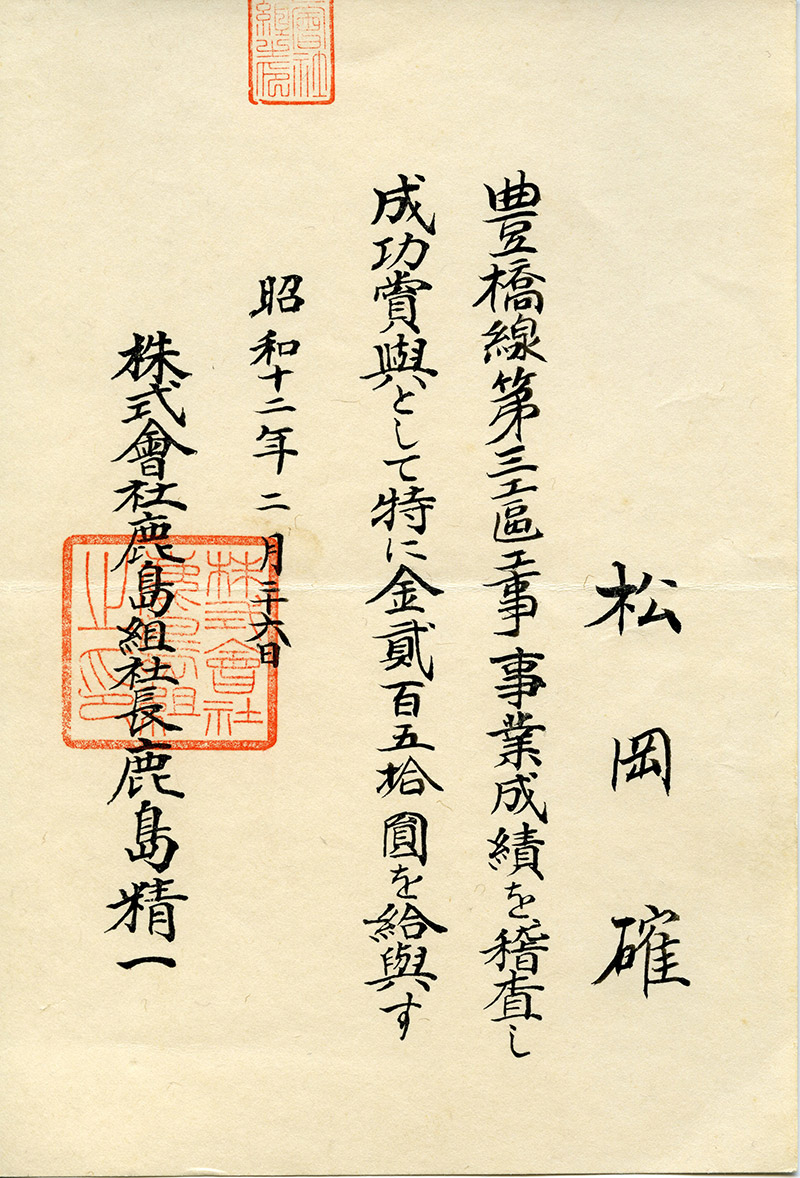 松岡確
豊橋線第三工區工事事業成績を稽査し
成功賞與として特に金貳百五拾圓を給與す
昭和十二年二月二十六日
株式會社鹿島組社長鹿島精一
株式會社
鹿島組
之印